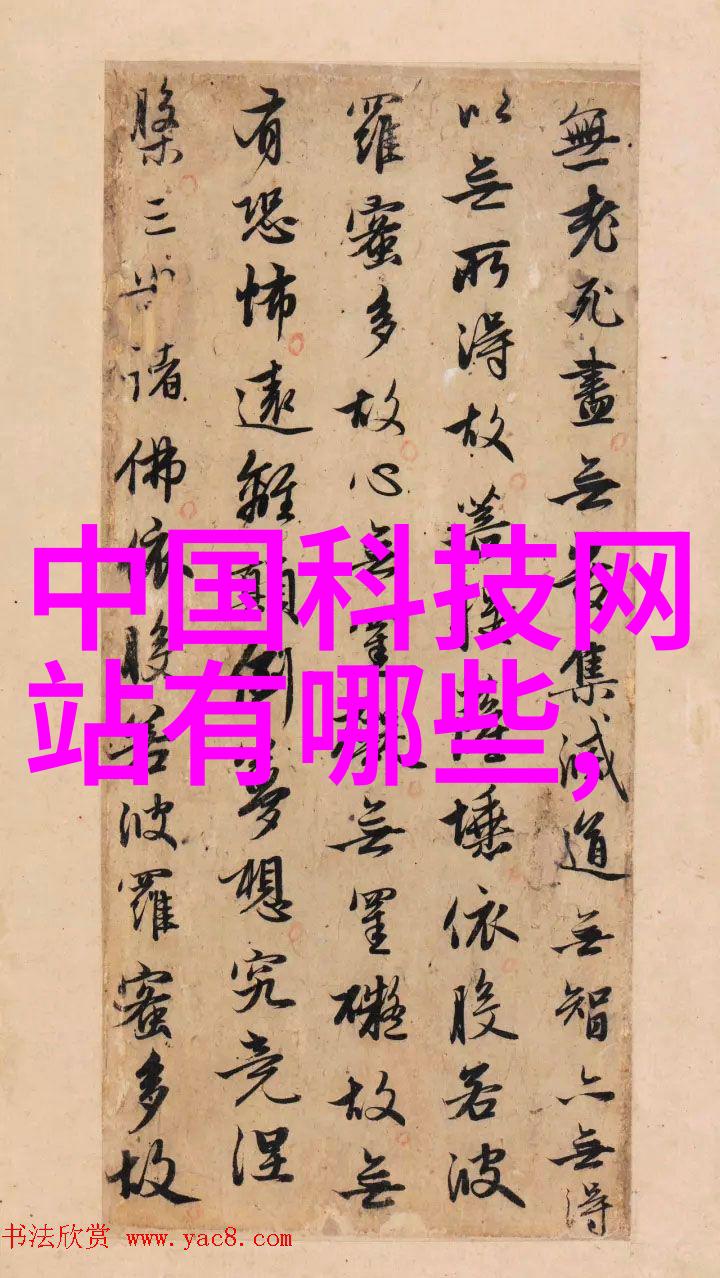 無老死盡無苦集滅道無智亦無得
以無所得故菩提薩埵依般若波
羅蜜多故心無罣礙無罣礙故無
有恐怖遠離顛倒夢想究竟涅
槃三世諸佛依般若波羅蜜多故
中国科技网
站有哪些,
书法欣赏 www.yac8.com